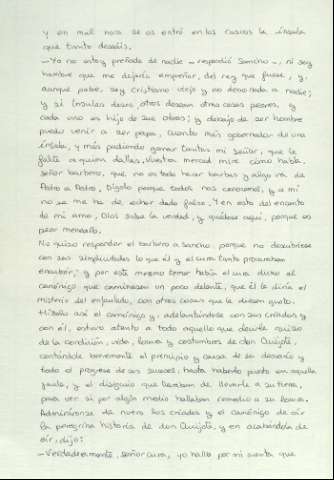 y en mal hora se os entró en los cascos la ínsula
que tanto deseáis.
- Yo no estoy preñado de nadie - respondió Sancho -, ni soy
hombre que me dejaría empreñar, del rey que fuese, y,
aunque pobre, soy cristiano viejo y no debo nada a nadie;
y si ínsulas deseo, otros desean otras cosas peores, y
cada uno es hijo de sus obras; y debajo de ser hombre
puedo venir a ser papa, cuanto más gobernador de una
ínsula, y más pudiendo ganar tantas mi señor, que le
falte a quien dallas. Vuestra merced mire cómo habla,
señor barbero, que no es todo hacer barbas y algo va de
Pedro a Pedro. Dígolo porque todos nos conocemos, y a mí
no se me ha de echar dado falso. Y en esto del encanto
de mi amo, Dios sabe la verdad, y quédese aquí, porque es
peor menearlo.
No quiso responder el barbero a Sancho, porque no descubriese
con sus simplicidades lo que él y el cura tanto procuraban
encubrir; y por este mesmo temor había el cura dicho al
canónigo que caminasen un poco delante, que él le diría el
misterio del enjaulado, con otras cosas que le diesen gusto.
Hízolo así el canónigo y, adelantándose con sus criados y
con él, estuvo atento a todo aquello que decirle quiso
de la condición, vida, locura y costumbres de don Quijote,
contándole brevemente el principio y causa de su desvarío y
todo el progreso de sus sucesos, hasta haberlo puesto en aquella
jaula, y el disignio que llevaban de llevarle a su tierra,
para ver si por algún medio hallaban remedio a su locura.
Admiráronse de nuevo los criados y el canónigo de oír
la peregrina historia de don Quijote, y en acabándola de
oír, dijo:
- Verdaderamente, señor cura, yo hallo por mi cuenta que